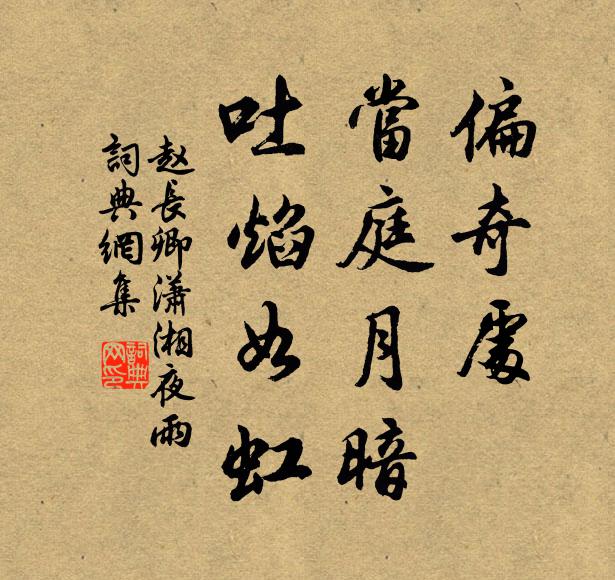 偏奇處
當庭月暗
吐焰如虹
赵長卿瀟湘夜雨
詞典網集
詞典网印